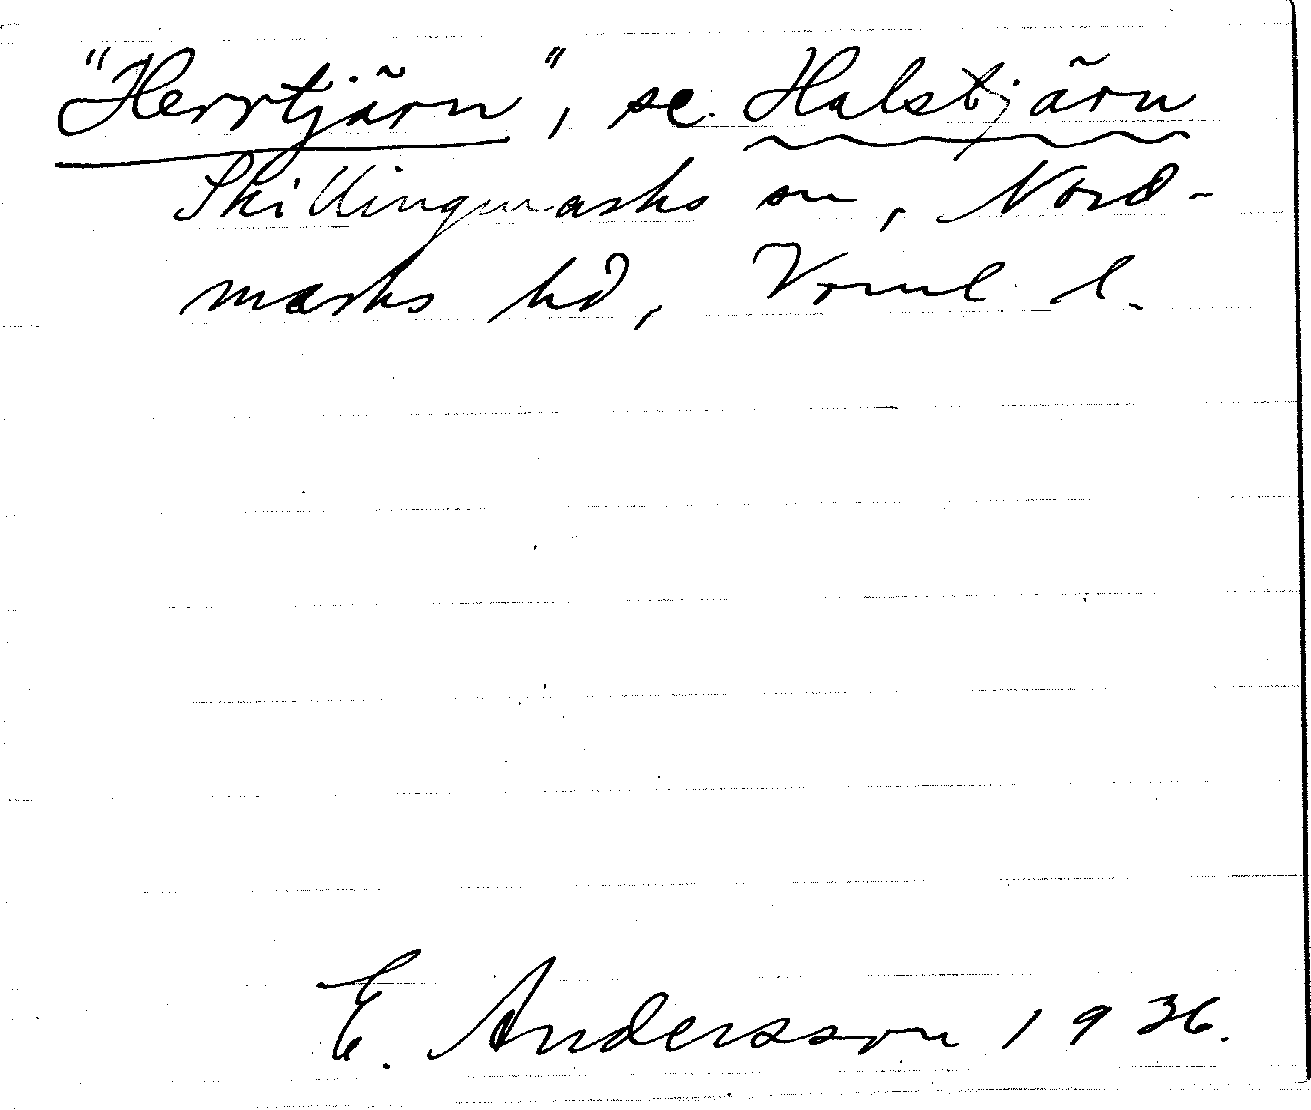 "Herrtjärn", se Halstjärn
Skillingmarks sn, Nord-
marks hd, Vrml. l.
E. Andersson 1936.